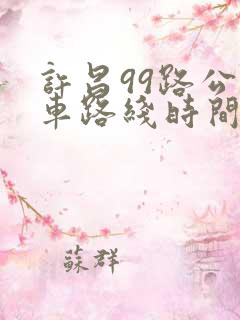 許昌99路公
車路綫時間
蘇群